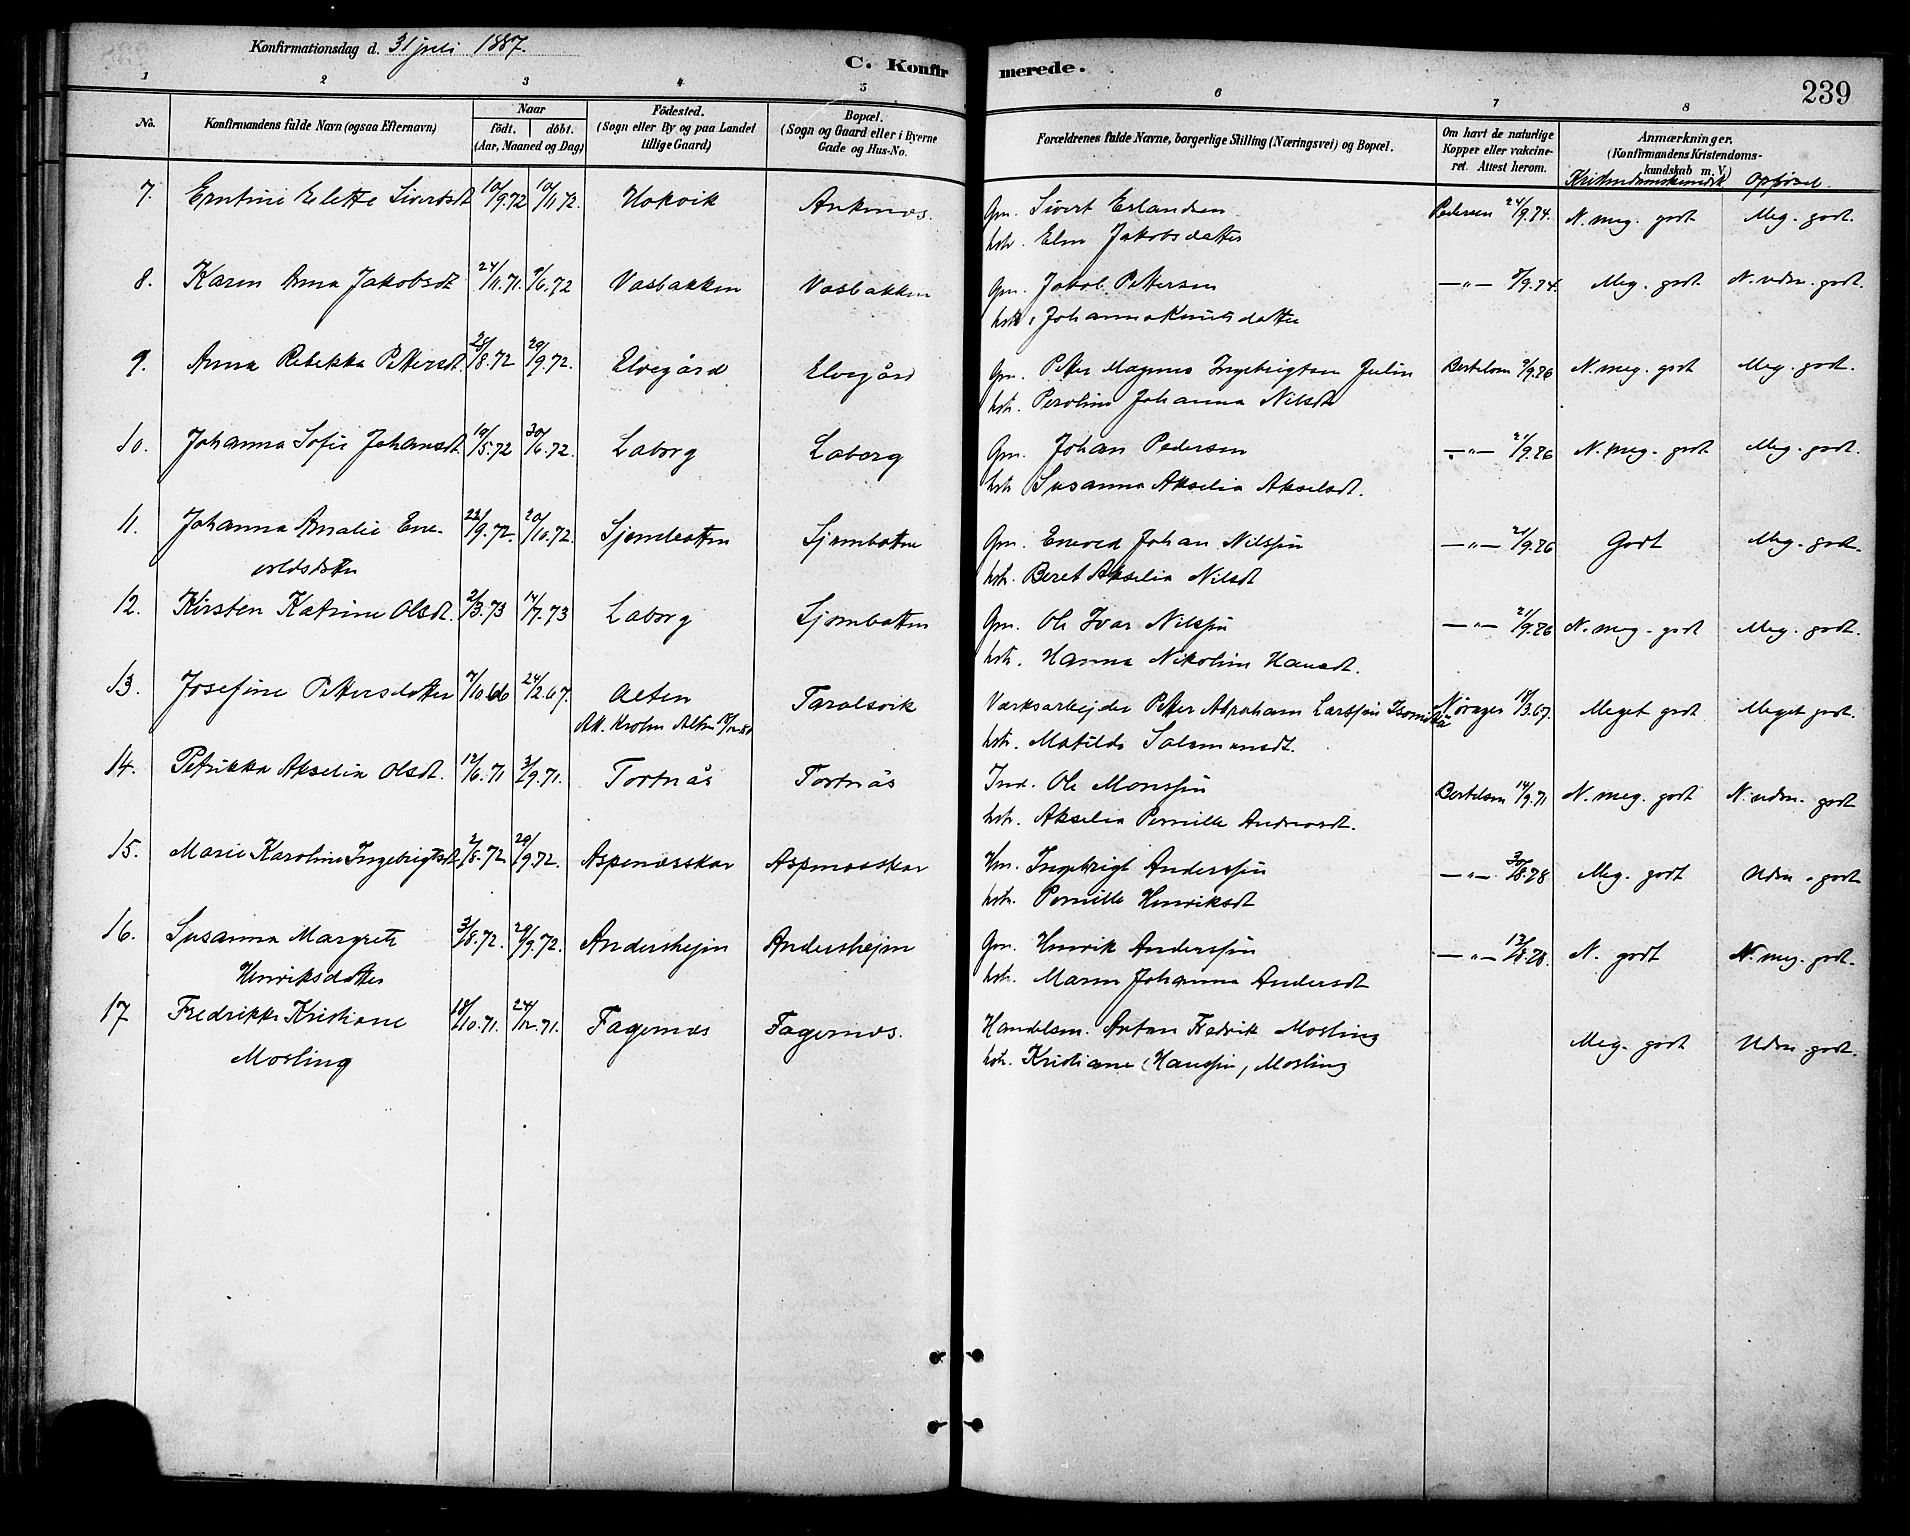 Konfirmationsdag d. 31 juli 1887.
C. Konfirmerede.
239
1 2 3 4 5 6 7 8
No.
Konfirmandens fulde Navn (ogsaa Efternavn)
Naar
født. døbt.
(Aar, Maaned og Dag)
Fødested.
(Sogn eller By og paa Landet
tillige Gaard)
Bopæl.
(Sogn og Gaard eller i Byerne
Gade og Hus-No.
Forældrenes fulde Navne, borgerlige Stilling (Næringsvei) og Bopæl.
Om havt de naturlige
Kopper eller vakcine-
ret. Attest herom.
Anmærkninger.
(Konfirmandens Kristendoms-
kundskab m. V.)
Kristendomskundsk opførsel.
7. Erntine Elette Sivertsdt 10/9.72 10/11.72. Hokvik Ankenæs. Gm. Sivert Erlandsen Pedersen 24/9.74. N. meg. godt Meg. godt.
hstr. Elen Jakobsdatter
8. Karen Anna Jakobsdt 24/11.71. 9/6.72 Vasbakken Vasbakken Gm. Jakob Pettersen —"— 8/9.74. Meg. godt N. udm. godt.
hstr. Johanna Knutsdatter
9. Anna Rebekka Pettersdt. 28/8.72 29/9.72. Elvegård Elvegård Gm. Petter Magnus Ingebrigtsen Julin Bertelsen 9/9.86 N. meg. godt Meg. godt.
hstr. Peroline Johanna Nilsdt
10. Johanna Sofie Johansdt. 19/5.72 30/6.72. Laborg Laborg Gm. Johan Pedersen —"— 21/9.86 N. meg. godt Meg. godt.
hstr. Susanna Akselia Akselsdt.
11. Johanna Amalie Ene- 22/9.72. 20/10.72. Sjombotten Sjombotten Gm. Enevold Johan Nilssen —"— 21/9.86 Godt Meg. godt.
voldsdatter hstr. Beret Akselia Nilsdt
12. Kirsten Katrine Olsdt. 2/3.73 14/7.73 Laborg Sjombotten Gm. Ole Ivar Nilssen —"— 21/9.86 N. meg. godt Meg. godt.
hstr. Hanna Nikoline Hansdt.
13. Josefine Pettersdatter 7/10.66 24/2.67. Alten Taralsvik Værksarbejder Petter Abraham Larssen Nørager 18/3.67. Meget godt Meget godt.
Att. Krohn Alten hstr. Matilde Salomonsdt.
14. Petrikka Akselia Olsdt. 12/6.71 3/9.71. Tortnås Tortnås Ind. Ole Monssen Bertelsen 14/9.71 N. meg. godt N. udm. godt
hstr. Akselia Pernille Andreasdt.
15. Marie Karoline Ingebrigtsdt. 2/8.72 29/9.72. Aspenesskar Aspenesskar Hm. Ingebrigt Anderssen —"— 30/8.78 Meg. godt Udm. godt
hstr. Pernille Henriksdt
16. Susanna Margrete 3/8.72. 29/9.72. Andershejm Andershejm Gm. Henrik Anderssen —"— 13/8.78. N. godt N. meg. godt.
Henriksdatter hstr. Maren Johanna Andersdt
17 Fredrikke Kristiane 18/10.71. 24/12.71. Fagernæs Fagernæs. Handelsm. Anton Fredrik Mosling Meg. godt Udm. godt.
Mosling hstr. Kristiane (Hanssen) Mosling